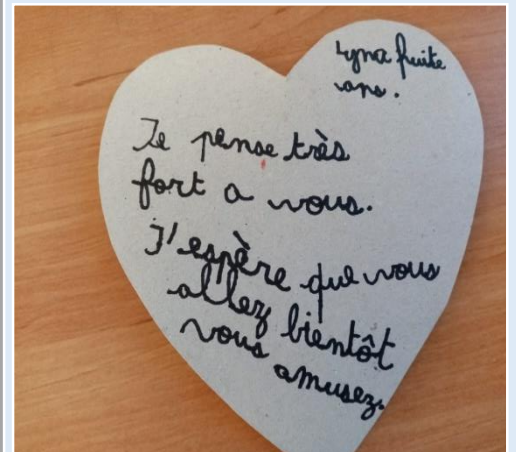 Lyna huite
ans.
Je pense très
fort a vous.
J'espère que vous
allez bientôt
vous amusez.